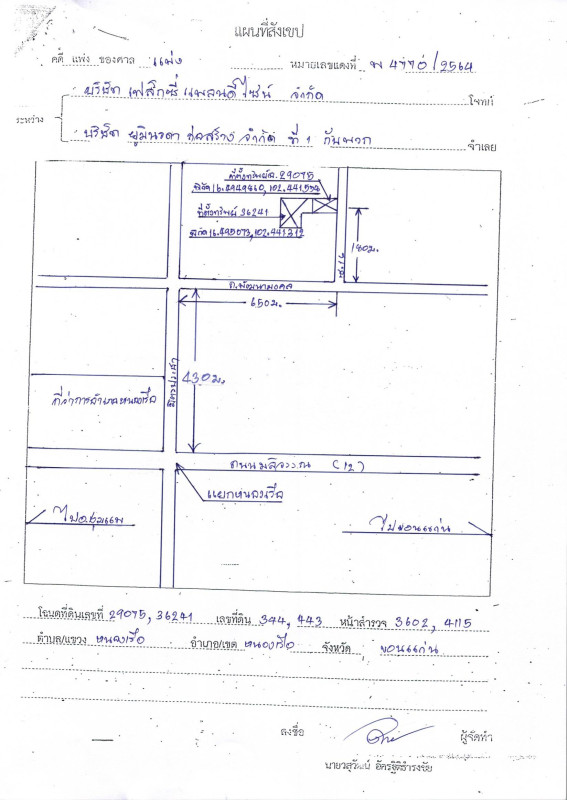 แผนที่สังเขป
คดี แพ่ง ของศาล แพ่ง หมายเลขแดงที่ พ 4770/2564
บริษัท เฟล็กซี่ แพลนดีไซน์ จำกัด โจทก์
ระหว่าง
บริษัท ก่อสร้าง จำกัด ที่ 1 กับพวก จำเลย
ที่ตั้งทรัพย์ฉ. 29075
พิกัด 16.4949860, 102.441554
ที่ตั้งทรัพย์ 36241
พิกัด 16.495073, 102.441312
180ม.
ถ.พัฒนามงคล
650ม.
430ม.
มิตรประชา
ที่ว่าการอำเภอหนองเรือ
ถนนมลิวรรณ (12)
แยกหนองเรือ
ไปอ.ชุมแพ
ไปขอนแก่น
โฉนดที่ดินเลขที่ 29075, 36241 เลขที่ดิน 344, 443 หน้าสำรวจ 3602, 4115
ตำบล/แขวง หนองเรือ อำเภอ/เขต หนองเรือ จังหวัด ขอนแก่น
ลงชื่อ ผู้จัดทำ
นายวสุวัฒน์ อัครฐิติธำรงชัย